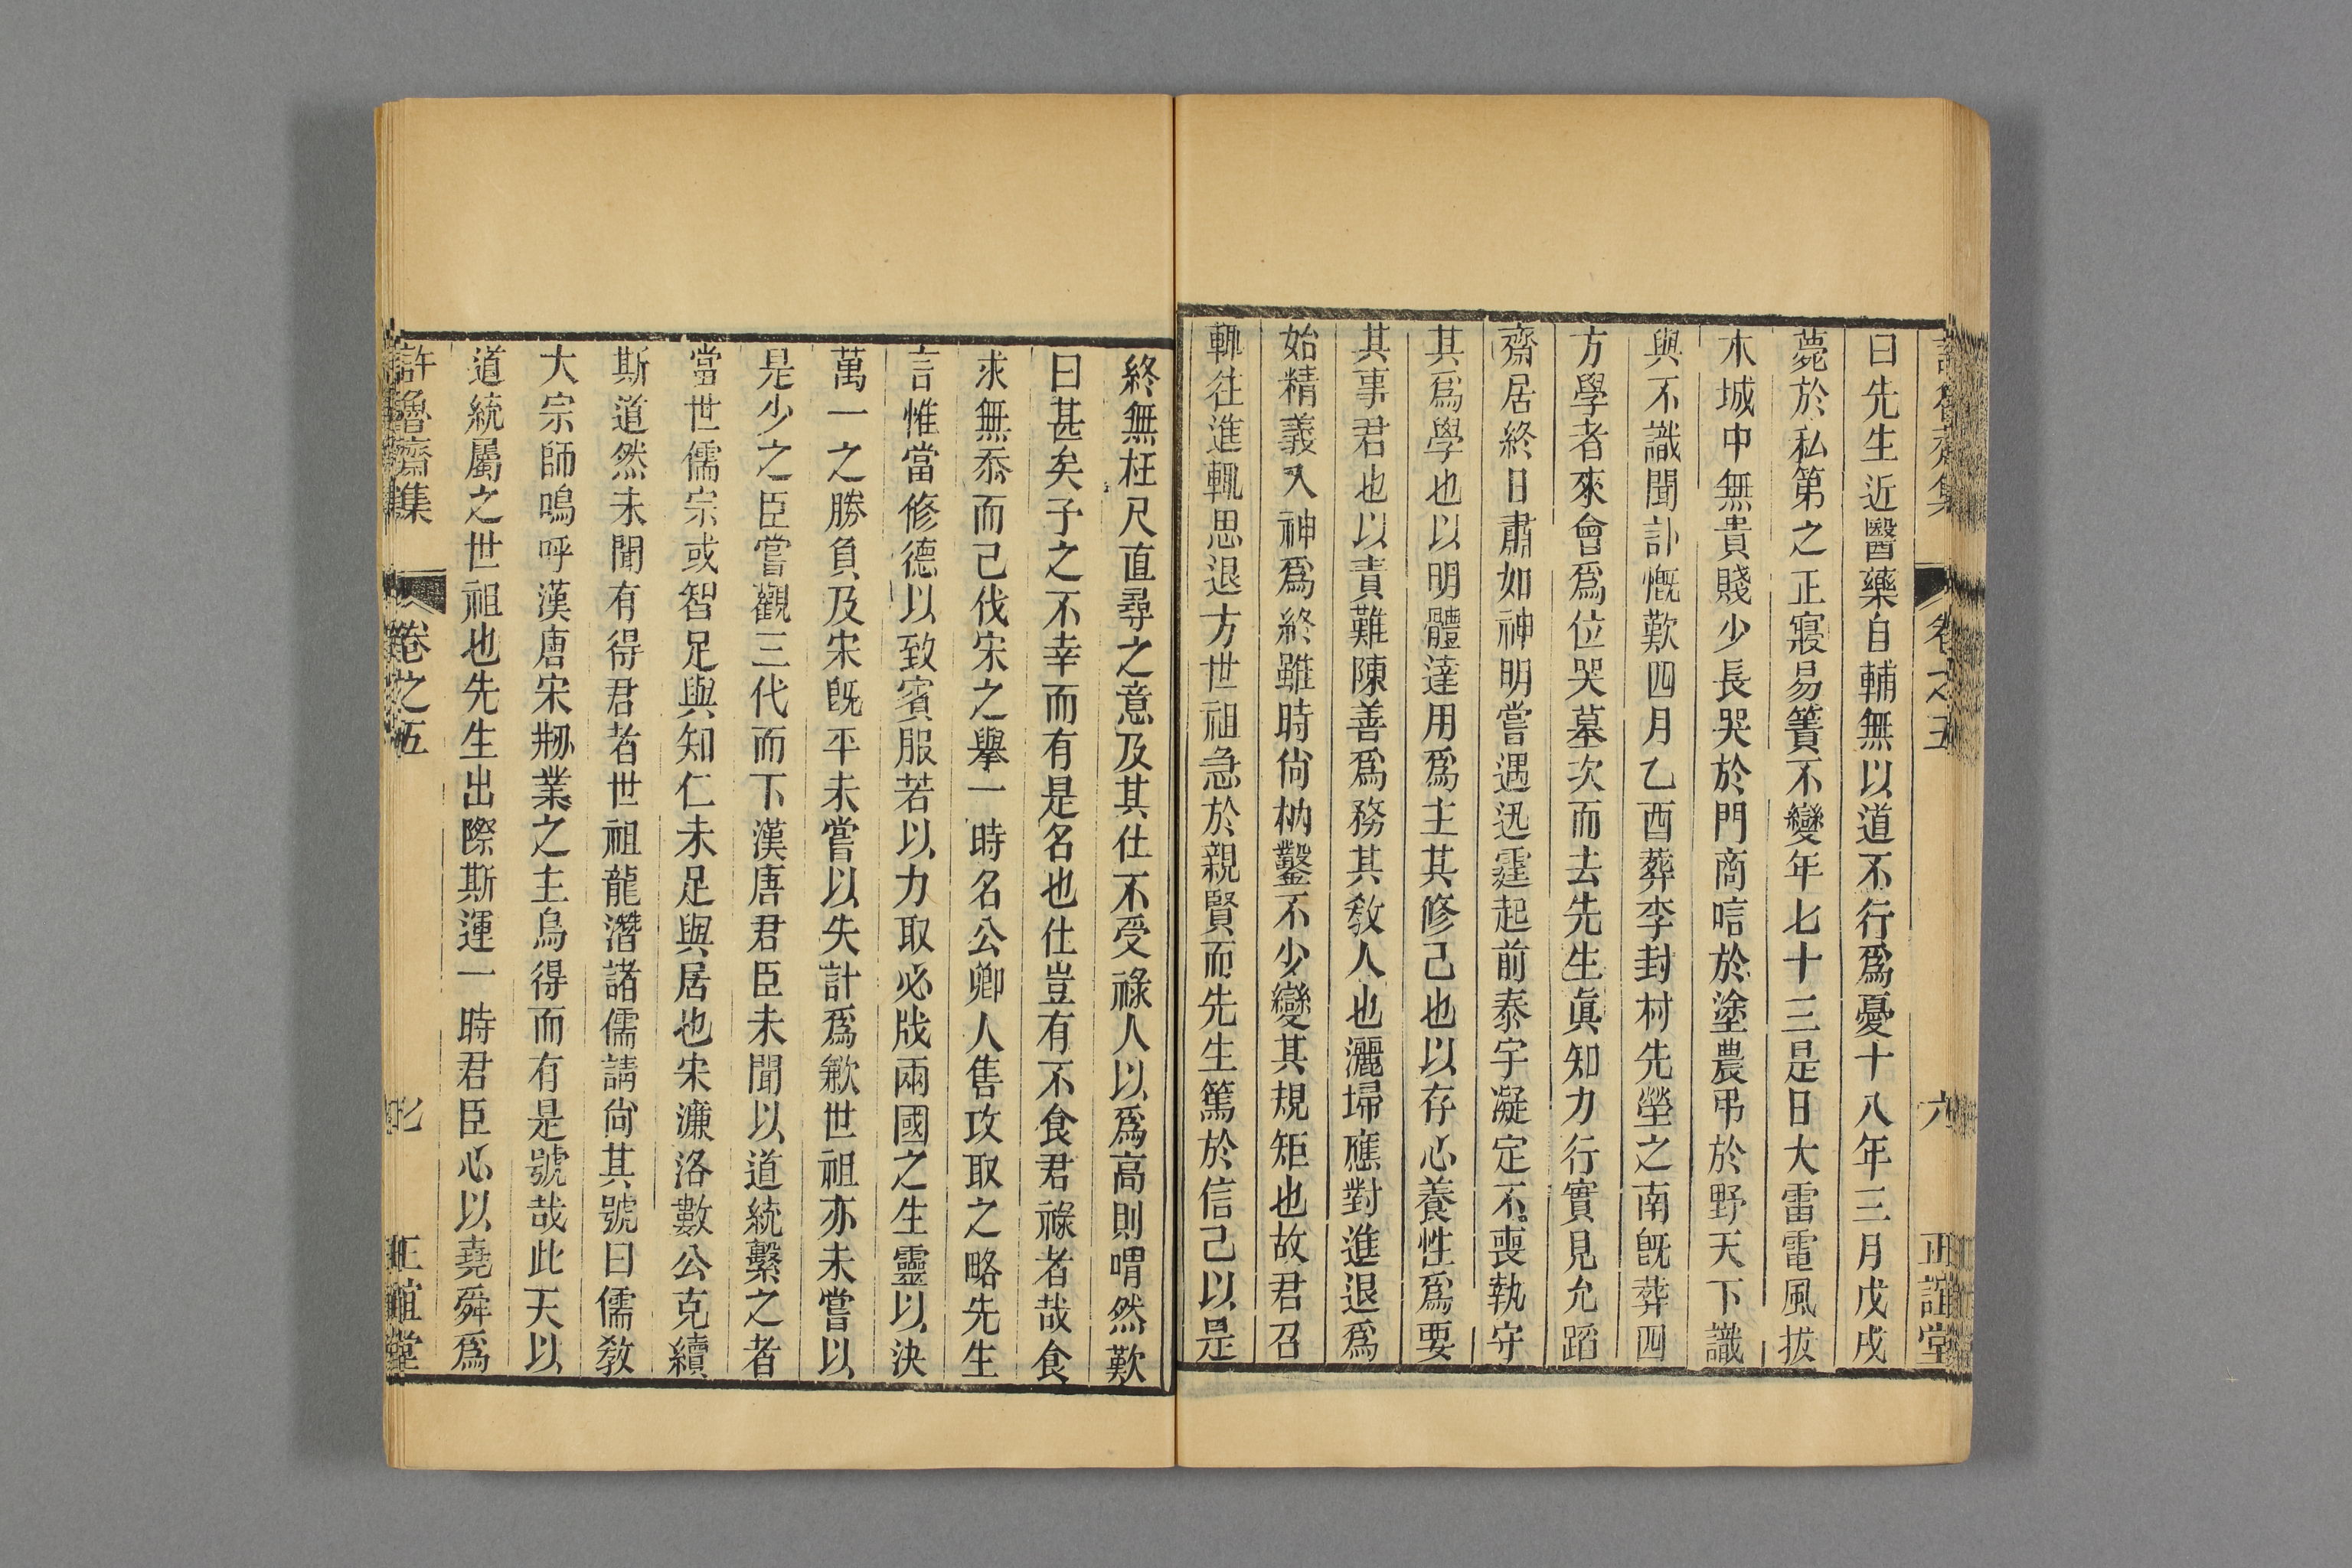 許魯齋集 卷之五 六 正誼堂
曰先生近醫藥自輔無以道不行爲憂十八年三月戊戌
薨於私第之正寢易簀不變年七十三是日大雷電風拔
木城中無貴賤少長哭於門商唁於塗農弔於野天下識
與不識聞訃慨歎四月乙酉葬李封村先塋之南旣葬四
方學者來會爲位哭墓次而去先生眞知力行實見允蹈
齋居終日肅如神明嘗遇迅霆起前泰宇凝定不喪執守
其爲學也以明體達用爲主其修己也以存心養性爲要
其事君也以責難陳善爲務其敎人也灑埽應對進退爲
始精義入神爲終雖時尙柄鑿不少變其規矩也故君召
輒往進輒思退方世祖急於親賢而先生篤於信己以是
終無枉尺直尋之意及其仕不受祿人以爲高則喟然歎
曰甚矣子之不幸而有是名也仕豈有不食君祿者哉食
求無忝而己伐宋之舉一時名公卿人售攻取之略先生
言惟當修德以致賓服若以力取必戕兩國之生靈以決
萬一之勝負及宋旣平未嘗以失計爲歉世祖亦未嘗以
是少之臣嘗觀三代而下漢唐君臣未聞以道統繫之者
當世儒宗或智足與知仁未足與居也宋濂洛數公克續
斯道然未聞有得君者世祖龍潛諸儒請尙其號曰儒敎
大宗師嗚呼漢唐宋剏業之主烏得而有是號哉此天以
道統屬之世祖也先生出際斯運一時君臣心以堯舜爲
許魯齋集 卷之五 七 正誼堂